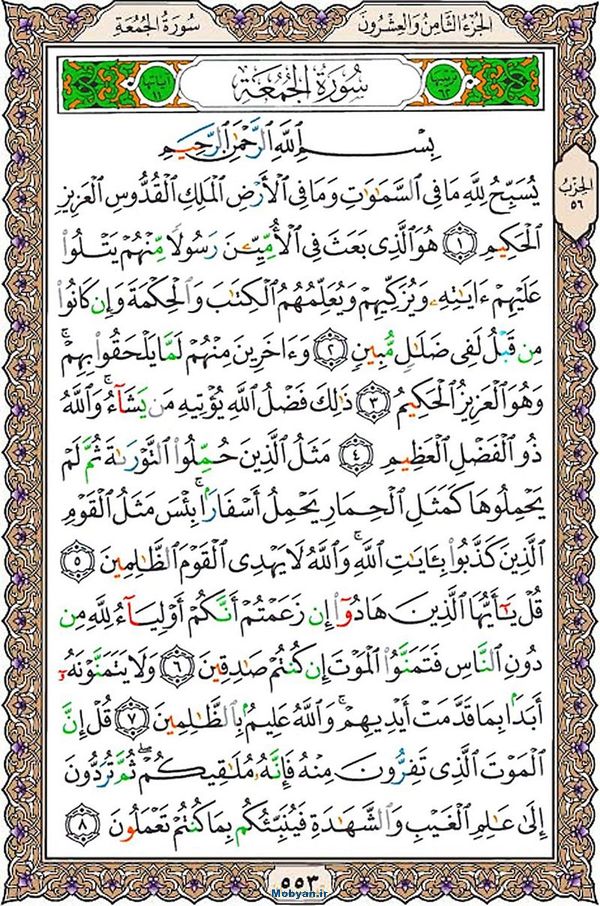 الجُزءُ الثَّامِنُ وَالعِشْرُونَ
سُورَةُ الجُمُعَةِ
سُورَةُ الجُمُعَةِ
بِسْمِ ٱللَّهِ ٱلرَّحْمَٰنِ ٱلرَّحِيمِ
يُسَبِّحُ لِلَّهِ مَا فِى ٱلسَّمَٰوَٰتِ وَمَا فِى ٱلْأَرْضِ ٱلْمَلِكِ ٱلْقُدُّوسِ ٱلْعَزِيزِ
ٱلْحَكِيمِ ١ هُوَ ٱلَّذِى بَعَثَ فِى ٱلْأُمِّيِّـۧنَ رَسُولًا مِّنْهُمْ يَتْلُوا۟
عَلَيْهِمْ ءَايَٰتِهِۦ وَيُزَكِّيهِمْ وَيُعَلِّمُهُمُ ٱلْكِتَٰبَ وَٱلْحِكْمَةَ وَإِن كَانُوا۟
مِن قَبْلُ لَفِى ضَلَٰلٍ مُّبِينٍ ٢ وَءَاخَرِينَ مِنْهُمْ لَمَّا يَلْحَقُوا۟ بِهِمْ ۚ
وَهُوَ ٱلْعَزِيزُ ٱلْحَكِيمُ ٣ ذَٰلِكَ فَضْلُ ٱللَّهِ يُؤْتِيهِ مَن يَشَآءُ ۚ وَٱللَّهُ
ذُو ٱلْفَضْلِ ٱلْعَظِيمِ ٤ مَثَلُ ٱلَّذِينَ حُمِّلُوا۟ ٱلتَّوْرَىٰةَ ثُمَّ لَمْ
يَحْمِلُوهَا كَمَثَلِ ٱلْحِمَارِ يَحْمِلُ أَسْفَارًۢا ۚ بِئْسَ مَثَلُ ٱلْقَوْمِ
ٱلَّذِينَ كَذَّبُوا۟ بِـَٔايَٰتِ ٱللَّهِ ۚ وَٱللَّهُ لَا يَهْدِى ٱلْقَوْمَ ٱلظَّٰلِمِينَ ٥
قُلْ يَٰٓأَيُّهَا ٱلَّذِينَ هَادُوٓا۟ إِن زَعَمْتُمْ أَنَّكُمْ أَوْلِيَآءُ لِلَّهِ مِن
دُونِ ٱلنَّاسِ فَتَمَنَّوُا۟ ٱلْمَوْتَ إِن كُنتُمْ صَٰدِقِينَ ٦ وَلَا يَتَمَنَّوْنَهُۥٓ
أَبَدًۢا بِمَا قَدَّمَتْ أَيْدِيهِمْ ۚ وَٱللَّهُ عَلِيمٌۢ بِٱلظَّٰلِمِينَ ٧ قُلْ إِنَّ
ٱلْمَوْتَ ٱلَّذِى تَفِرُّونَ مِنْهُ فَإِنَّهُۥ مُلَٰقِيكُمْ ۖ ثُمَّ تُرَدُّونَ
إِلَىٰ عَٰلِمِ ٱلْغَيْبِ وَٱلشَّهَٰدَةِ فَيُنَبِّئُكُم بِمَا كُنتُمْ تَعْمَلُونَ ٨
الحِزْبُ
٥٦
٥٥٣
Mobyan.ir